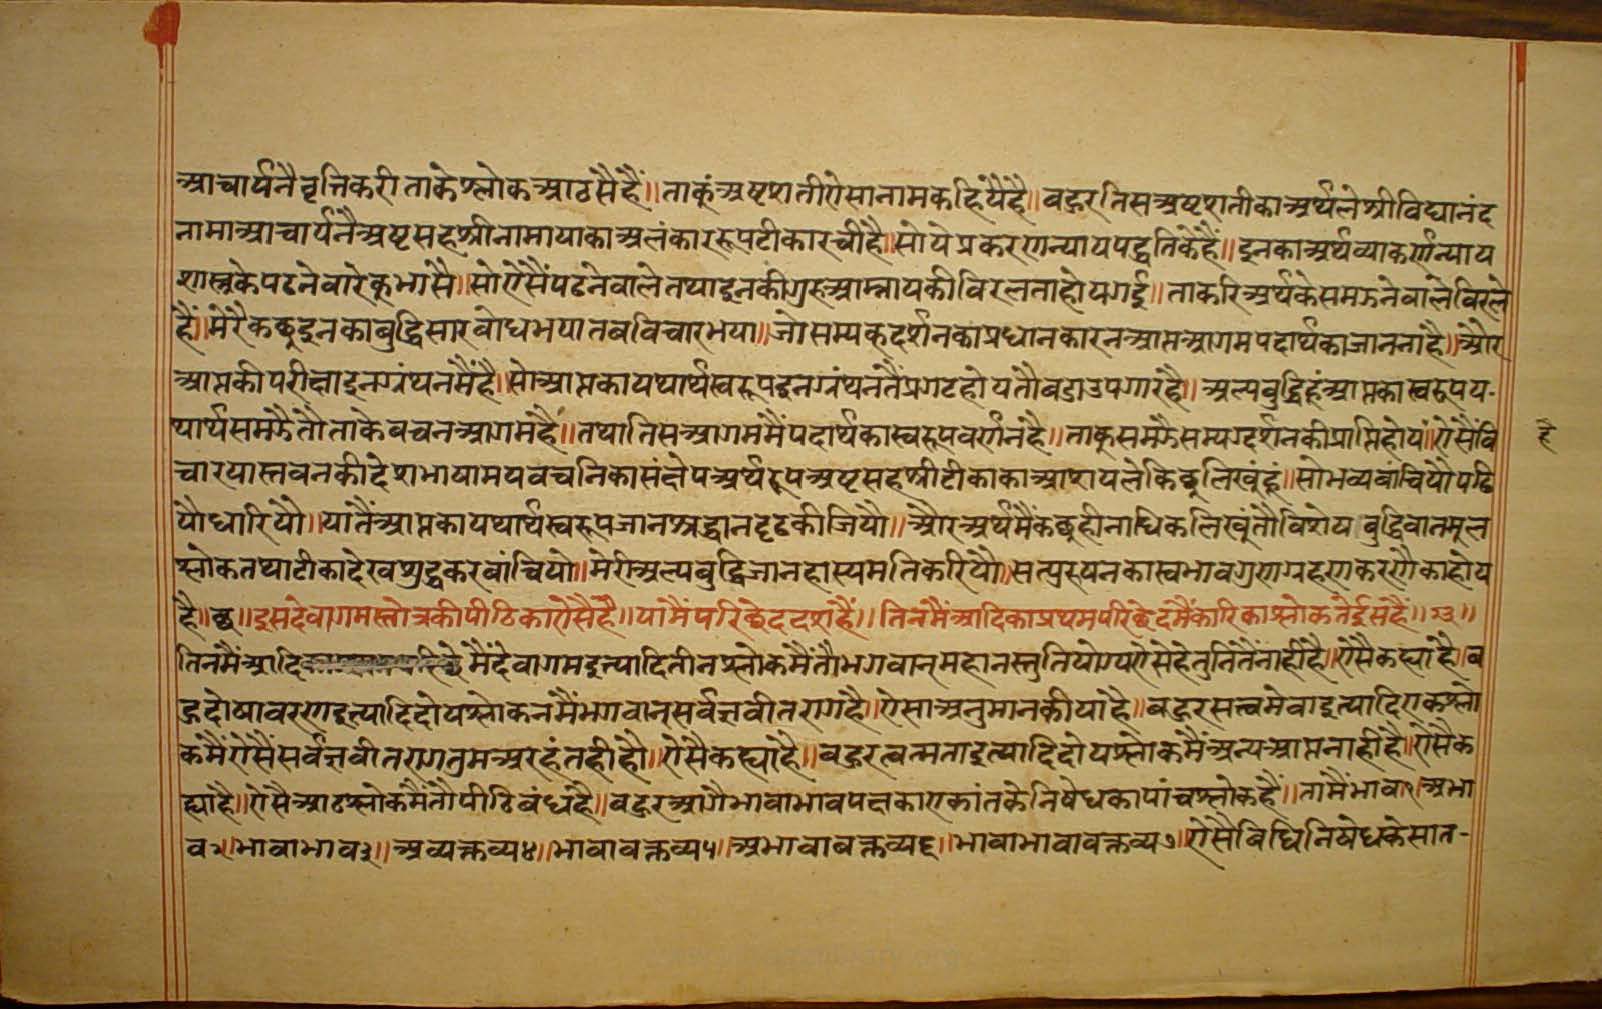 आचार्यनै वृत्तिकरी ताके श्लोक आठसै हैं॥ ताकूं अष्टशती ऐसा नाम कहिये है॥ बहुरि तिस अष्टशतीका अर्थ ले श्री विद्यानंद
नामा आचार्यनै अष्टसहश्री नामा याका अलंकाररूप टीका रची है॥ सो ये प्रकरण न्यायपद्धतिके हैं॥ इनका अर्थ व्याकर्ण न्याय
शास्त्रके पढनेवारेकू भासै॥ सो ऐसैं पढनेवाले तथा इनकी गुरु आम्नायकी विरलता होय गई॥ ताकरि अर्थके समझनेवाले विरले
हैं॥ मेरै कछु इनका बुद्धिसार बोध भया तब विचार भया॥ जो सम्यक्दर्शनका प्रधान कारन आप्त आगम पदार्थका जानना है॥ और
आप्तकी परीक्षा इन ग्रंथनमैं है॥ सो आप्तका यथार्थ स्वरूप इन ग्रंथनतैं प्रगट होय तौ बडा उपगार है॥ अल्पबुद्धिहूं आप्तका स्वरूप य-
थार्थ समझै तौ ताके वचन आगम है॥ तथा तिस आगममैं पदार्थका स्वरूप वर्णन है॥ ताकू समझै सम्यग्दर्शनकी प्राप्ति होय॥ ऐसैं वि
चार या स्तवनकी देशभाषामय वचनिका संक्षेप अर्थरूप अष्टसहश्री टीकाका आशय ले किछु लिखूं हूं॥ सो भव्य बांचियौ पढि
यौ धारियौ॥ यातैं आप्तका यथार्थ स्वरूप जान श्रद्धान दृढ कीजियौ॥ और अर्थमैं कछु हीनाधिक लिखूं तौ विशेष बुद्धिवान मूल
श्लोक तथा टीका देख शुद्ध कर बांचियो॥ मेरी अल्पबुद्धि जान हास्य मति करियौ॥ सत्पुरुषनका स्वभाव गुणग्रहण करणैका होय
है॥ छ॥ इस देवागमस्तोत्रकी पीठिका ऐसै है॥ यामैं परिछेद दश हैं॥ तिनमैं आदिका प्रथम परिछेदमैं कारिका श्लोक तेईस हैं॥ २३॥
तिनमैं आदि मैं देवागम इत्यादि तीन श्लोकमैं तौ भगवान् महान स्तुतियोग्य ऐसे हेतुनितैं नाहीं है॥ ऐसै कह्या है॥ ब
हुरि दोषावरण इत्यादि दोय श्लोकनमैं भगवान् सर्वज्ञ वीतराग है॥ ऐसा अनुमान कीया है॥ बहुरि सत्वमेवा इत्यादि एक श्लो
कमैं ऐसैं सर्वज्ञ वीतराग तुम अरहंत ही हौ॥ ऐसै कह्या है॥ बहुरि त्वन्मता इत्यादि दोय श्लोकमैं अन्य आप्त नाही है॥ ऐसै क
ह्या है॥ ऐसै आठ श्लोकमैं तौ पीठिबंध है॥ बहुरि आगै भावाभाव पक्षका एकांतके निषेधका पांच श्लोक हैं॥ तामैं भाव १॥ अभा
व २॥ भावाभाव ३॥ अव्यक्तव्य ४॥ भावावक्तव्य ५॥ अभावावक्तव्य ६॥ भावाभावावक्तव्य ७॥ ऐसै विधि निषेधके सात-